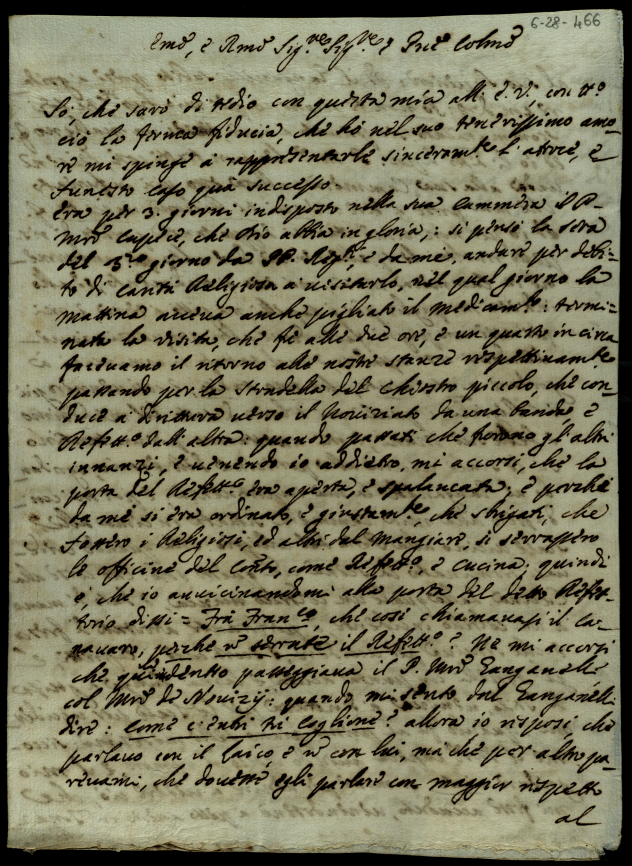 6-28-466
Emo, e Rmo Sigre Sigre e Pne Colmo
Sò, che sarò di tedio con questa mia all' E. V., con tto
ciò la ferma fiducia, che hò nel suo tenerissimo amo-
re mi spinge à rappresentarle sinceramte l'atroce, e
funesto caso quà successo.
Era per 3. giorni indisposto nella sua Cammera il P.
Mro Capece, che Dio abbia in gloria,: si pensò la sera
del 3.o giorno da P. Regte, e da me, andare per debi=
to di carità Religiosa a visitarlo, nel qual giorno la
mattina aveva anche pigliato il medicamto: termi=
nata la visita, che fù alle due ore, e un quarto in circa
facevamo il ritorno alle nostre stanze respettivamte
passando per la stradella del Chiostro piccolo, che con-
duce a dirittura verso il Noviziato da una banda e
Refetto dall' altra: quando passati che furono gl' altri
innanzi, e venendo io addietro, mi accorsi, che la
porta del Refetto era aperta, e spalancata; e perche
da me si era ordinato, e giustamte, che sbigati, che
fossero i Religiosi, ed altri dal mangiare, si serrassero
le officine del Conto, come Refetto, e cucina; quindi
è, che io avvicinandomi alla porta del detto Refet-
torio dissi = Frà Franco, che così chiamavasi il Ca-
navaro, perche n serrate il Refetto? Ne mi accorsi
che dentro passeggiava il P. Mro Ganganelli
col Mro de Novizij: quando mi sento dal Ganganelli
dire: come c'entri tù Coglione? allora io risposi, che
parlavo con il laico, e n con lui, ma che per altro pa-
revami, che dovette egli parlare con maggior rispetto
al